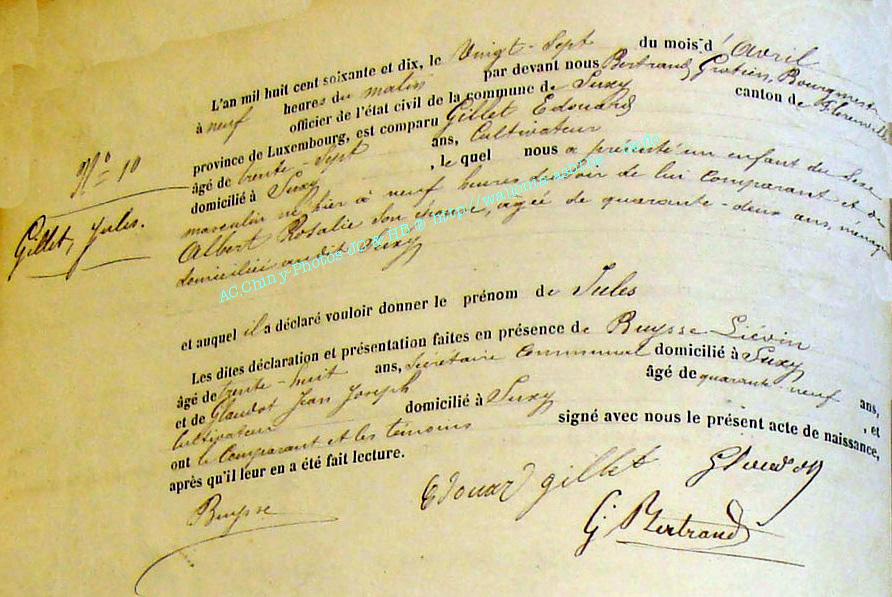 N° 10
Gillet, Jules.
L'an mil huit cent soixante et dix, le Vingt-Sept du mois d'Avril
à neuf heures du matin par devant nous Bertrand, Bourgmestre
officier de l'état civil de la commune de Suxy canton de Florenville
province de Luxembourg, est comparu Gillet Edouard
âgé de trente-Sept ans, Cultivateur
domicilié à Suxy, le quel nous a présenté un enfant du Sexe
masculin né hier à neuf heures du soir de lui Comparant et de
Albert Rosalie Son épouse, agée de quarante-deux ans, ménagère
domiciliée audit Suxy
AC.Chiny-Photos
et auquel il a déclaré vouloir donner le prénom de Jules
Les dites déclaration et présentation faites en présence de Buysse Liévin
âgé de trente-huit ans, Secrétaire Communal domicilié à Suxy
et de Glaudot Jean Joseph âgé de quarante-neuf ans,
Cultivateur domicilié à Suxy, et
ont le Comparant et les témoins signé avec nous le présent acte de naissance,
après qu'il leur en a été fait lecture.
Buysse
Edouard gillet
Glaudot
G. Bertrand